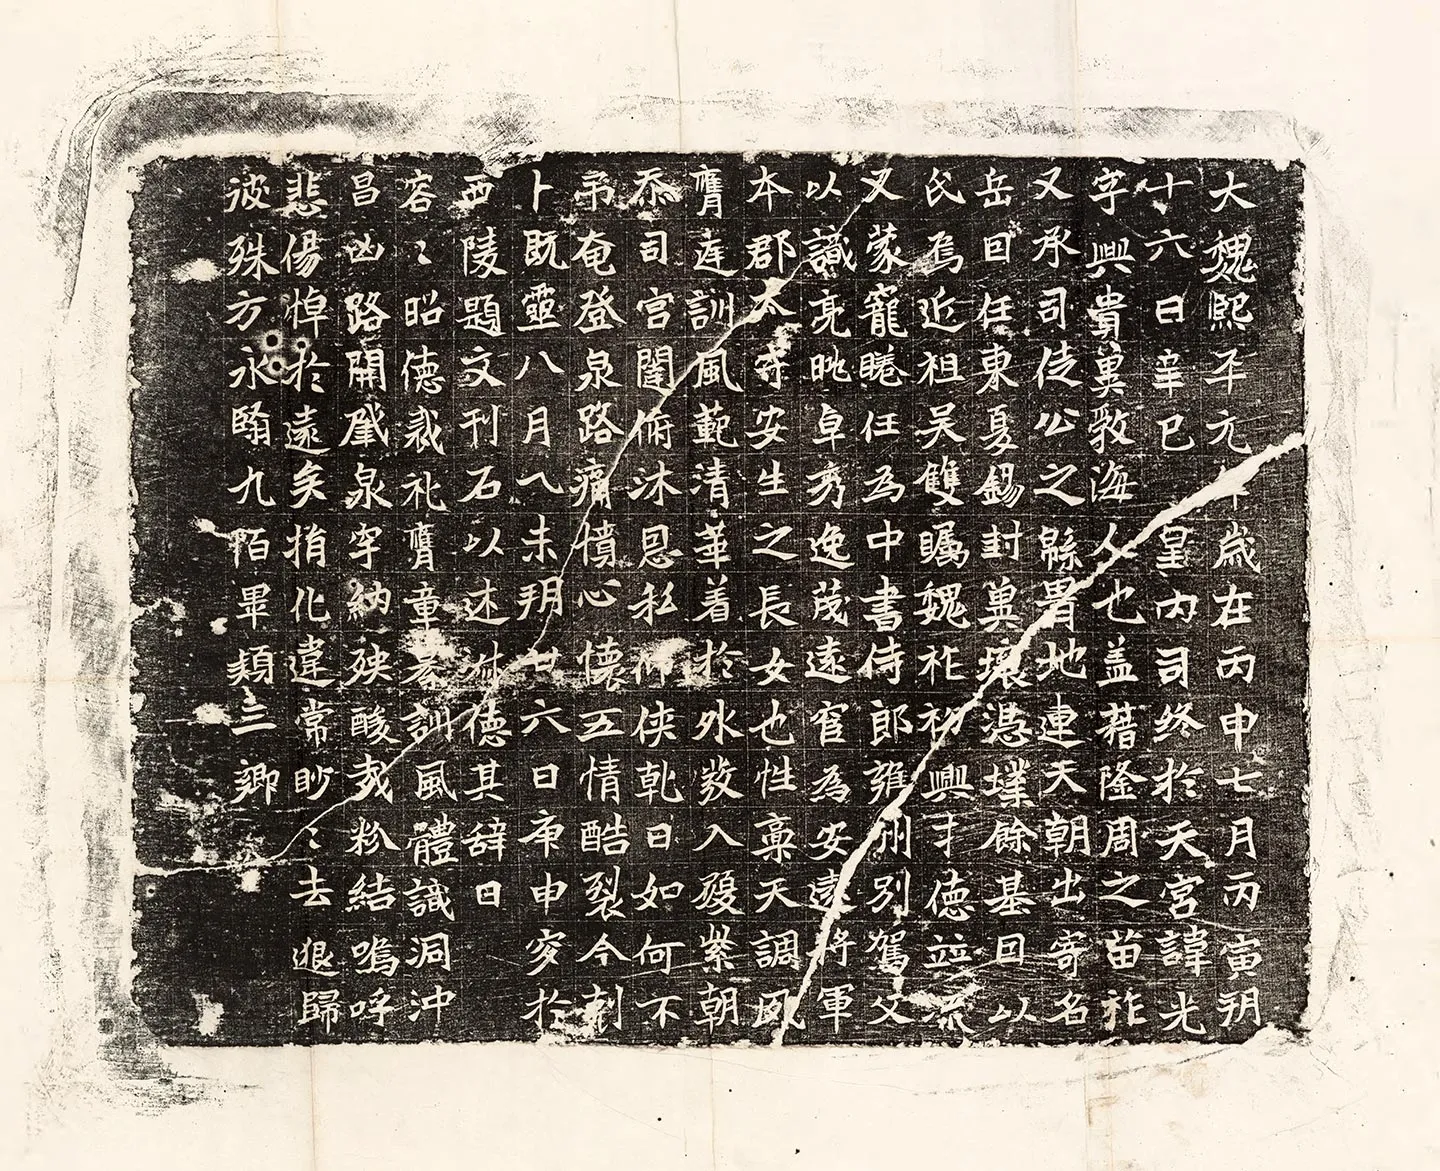 大魏熙平元年歲在丙申七月丙寅朔
十六日辛巳皇内司終於天宮諱光
字興貴冀敦海人也盖藉隆周之苗祚
又承司徒公之緜胄地連天朝出寄名
岳回任東夏錫封冀壤憑墣餘基回以
氏焉近祖吴雙矚魏祚初興才德竝流
又蒙寵睠任為中書侍郎雍州別駕父
以識亮眺卓秀逸茂遠官為安遠將軍
本郡太守安生之長女也性稟天調風
膺莲訓風範清華着於外教入殿紫朝
忝司宮闈俯沐恩私仰侠乾日如何不
弔奄登泉路痛憤心懐五情酷裂今剋
卜既靈八月乙未朔廿六日庚申穸於
西陵題文刊石以述德其辞曰
容〻昭德裁礼膺童慕訓風體識洞沖
昌凶路開泉穸納殃酸哉粉結嗚呼
悲傷悼於遠矣捎化違常眇〻去退歸
彼殊方永翳九陌畢類三卿